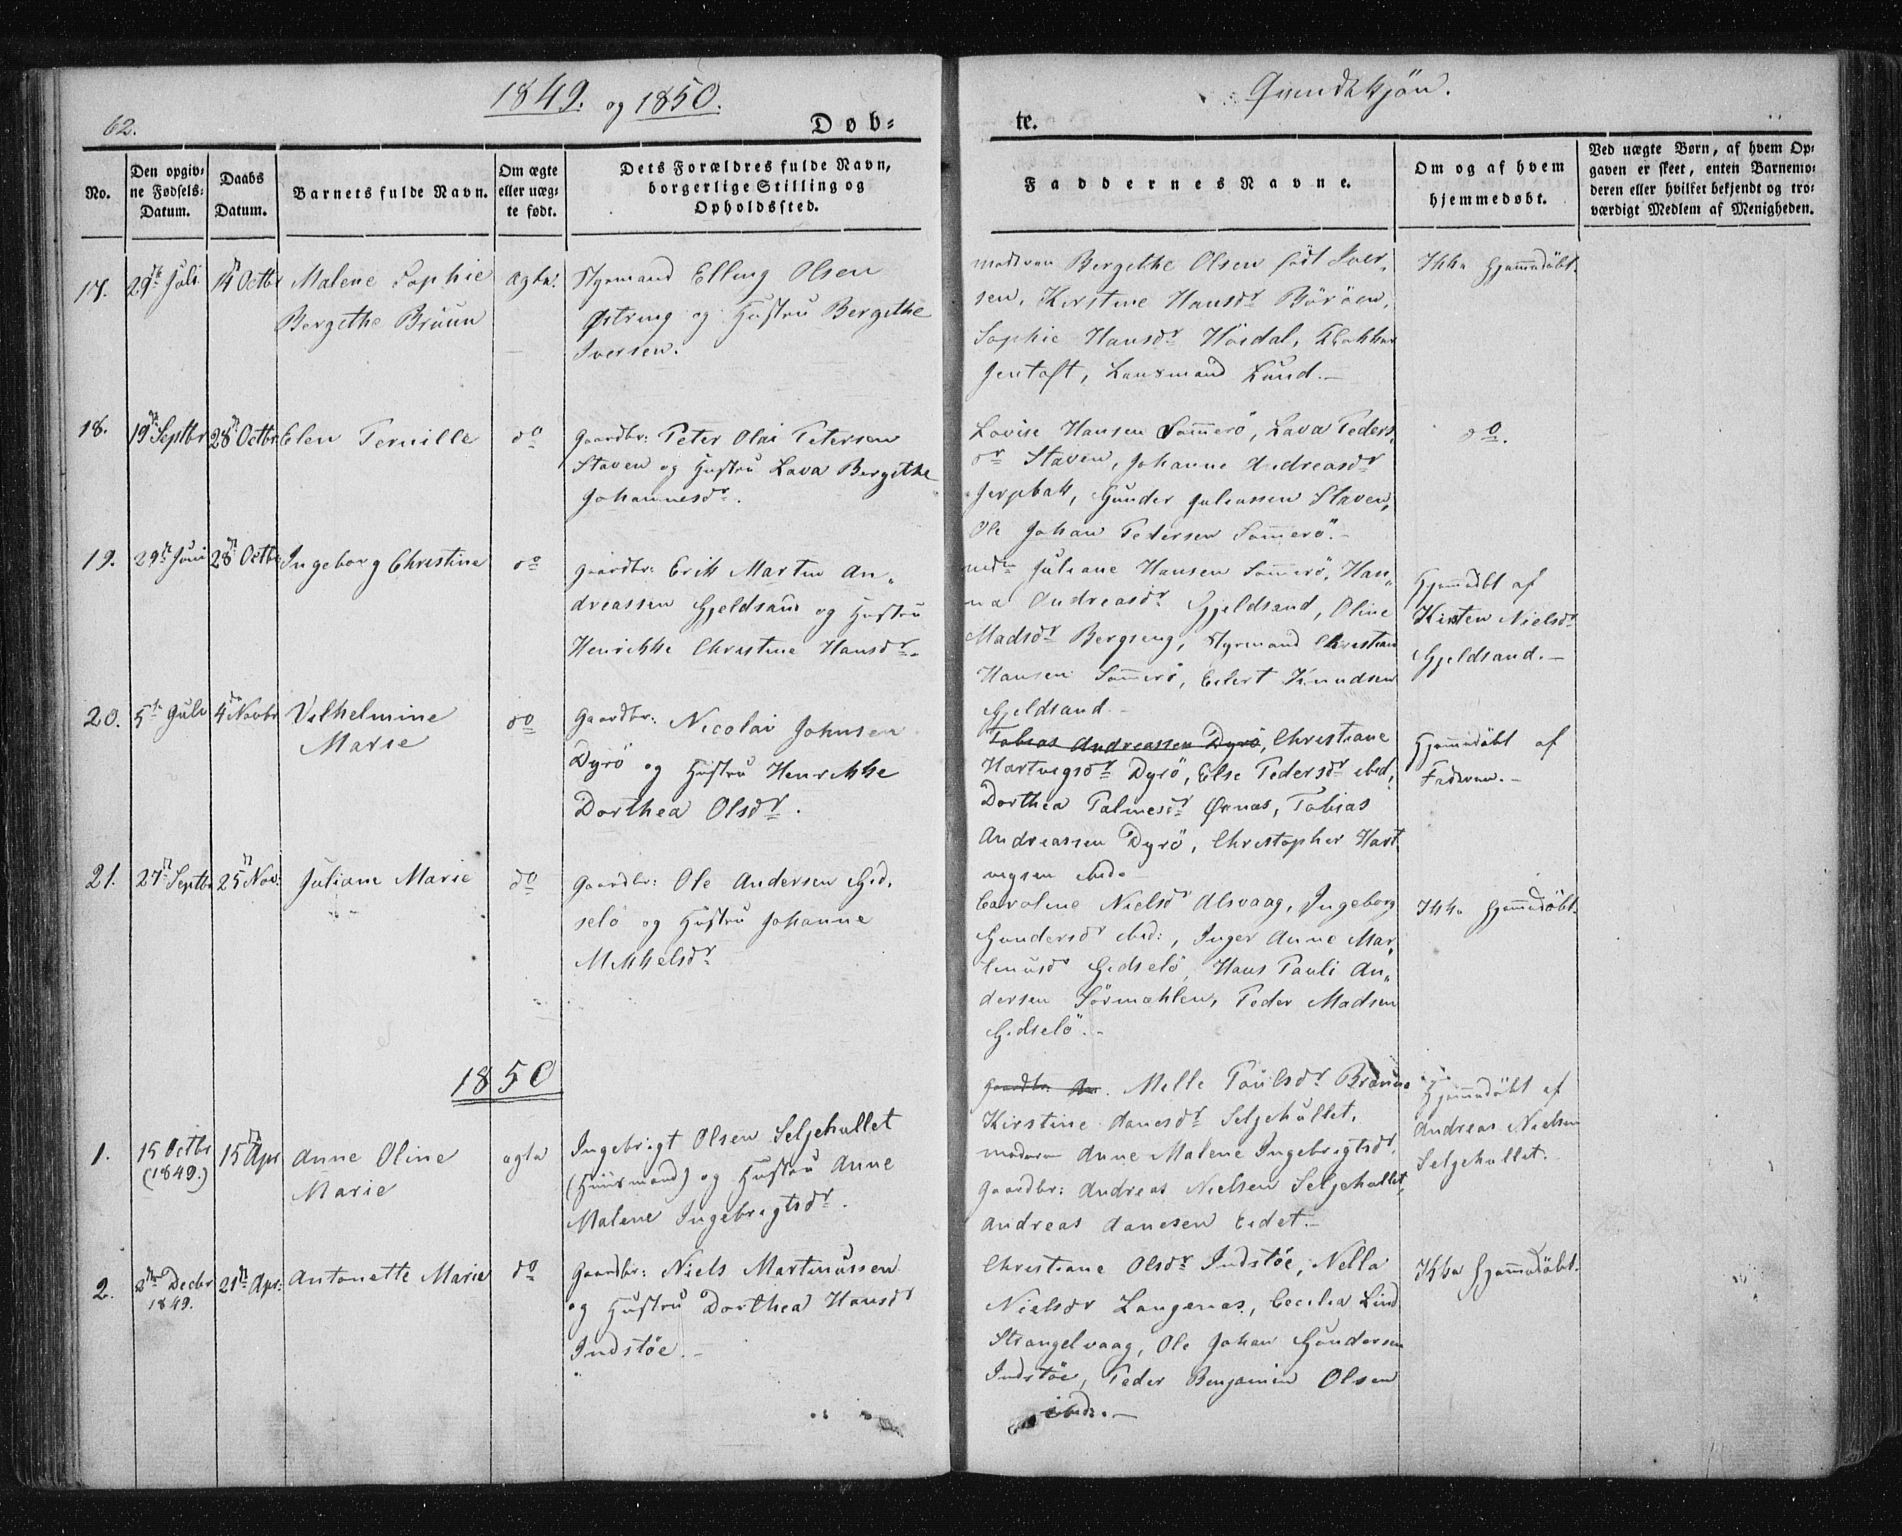 62.
1849. og 1850.
Døb=
te.
Qvindekjön.
No.
Den opgiv-
ne Fødsels-
Datum.
Daabs
Datum.
Barnets fulde Navn.
Om ægte
eller uæg-
te født.
Dets Forældres fulde Navn,
borgerlige Stilling og
Opholdssted.
Faddernes Navne.
Om og af hvem
hjemmedøbt.
Ved uægte Børn, af hvem Op-
gaven er skeet, enten Barnemo-
deren eller hvilket bekjendt og tro-
værdigt Medlem af Menigheden.
17.
29de Juli
14n Octbr
Malene Sophie
Bergethe Bruun
ægte.
Styrmand Elling Olsen
Østring og Hustru Bergethe
Iversen.
moderen Bergethe Olsen födt Iver-
sen, Kirstine Hansdr Böröen,
Sophie Hansdr Höidal, Klokker
Jentoft, Lensmand Lund.-
Ikke hjemmedöbt.
18.
19de Septbr
28n Octbr
Elen Pernille
do
Gaardbr: Peter Olai Petersen
Staven og Hustru Lava Bergethe
Johannesdr.
Lovise Hansen Sommerö, Lava Peders
dr Staven, Johanne Andreasdr
Jerpbak, Gunder Juliussen Staven,
Ole Johan Pedersen Sommerö.-
do.
19.
29de Juni
28n Octbr
Ingeborg Christine
do
Gaardbr: Erik Martin An-
dreassen Gjeldsand og Hustru
Henrikke Christine Hansdr.
Juliane Hansen Sommerö, Han-
na Andreasdr Gjeldsand, Oline
Madsdr Bergseng, Styrmand Christian
Hansen Sommerö, Eilert Knudsen
Gjeldsand.-
Hjemmedöbt af
Kirsten Nielsdr
Gjeldsand.-
20.
5te Juli
4de Novbr
Vilhelmine
Marie
do
Gaardbr: Nicolai Johnsen
Dyrö og Hustru Henrikke
Dorthea Olsdr.
Tobias Andreassen Dyrö, Christiane
Hartvigsdr Dyrö, Else Pedersdr ibid,
Dorthea Palmesdr Ørnæs, Tobias
Andreassen Dyrö, Christopher Hart
vigsen ibid.
Hjemmedöbt af
Faderen.-
21.
27n Septbr
25n Nov:
Juliane Marie
do
Gaardbr: Ole Andersen Gid-
selö og Hustru Johanne
Mikkelsdr
Caroline Nielsdr Alsvaag, Ingeborg
Gundersdr ibid:, Inger Anne Mar-
tinusdr Gidselö, Hans Pauli An-
dersen Sörmæhlen, Peder Madsen
Gidselö.-
Ikke hjemmedöbt.
1850
1.
15 Octbr
(1849.)
15n Apr
Anne Oline
Marie
ægte
Ingebrigt Olsen Seljehullet
(Huusmand) og Hustru Anne
Malene Ingebrigtsdr.
Gaardbr: An. Melle Poulsdr
Kirstine Danesdr Seljehullet,
moderen Anne Malene Ingebrigtsdr,
Gaardbr: Andreas Nielsen Seljehullet,
Andreas Danesen Eidet.-
Hjemmedöbt af
Andreas Nielsen
Seljehullet.-
2.
2den Decbr
1849.
21n Apr:
Antonette Marie
do
Gaardbr: Niels Martinussen
og Hustru Dorthea Hansdr
Indstöe.-
Christiane Olsdr Indstöe, Nella
Nielsdr Langenæs, Cecilia Lind
Strengelvaag, Ole Johan Gundersen
Indstöe, Peder Benjamin Olsen
ibid.-
Ikke hjemmedöbt.